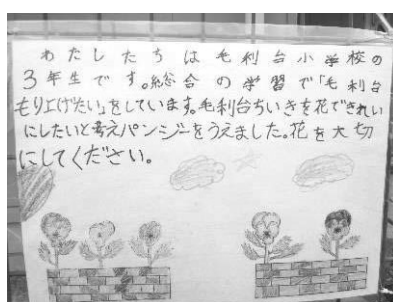 わたしたちは毛利台小学校の
3年生です。総合の学習で「毛利台
もり上げたい」をしています。毛利台ちいきを花できれい
にしたいと考えパンジーをうえました。花を大切
にしてください。